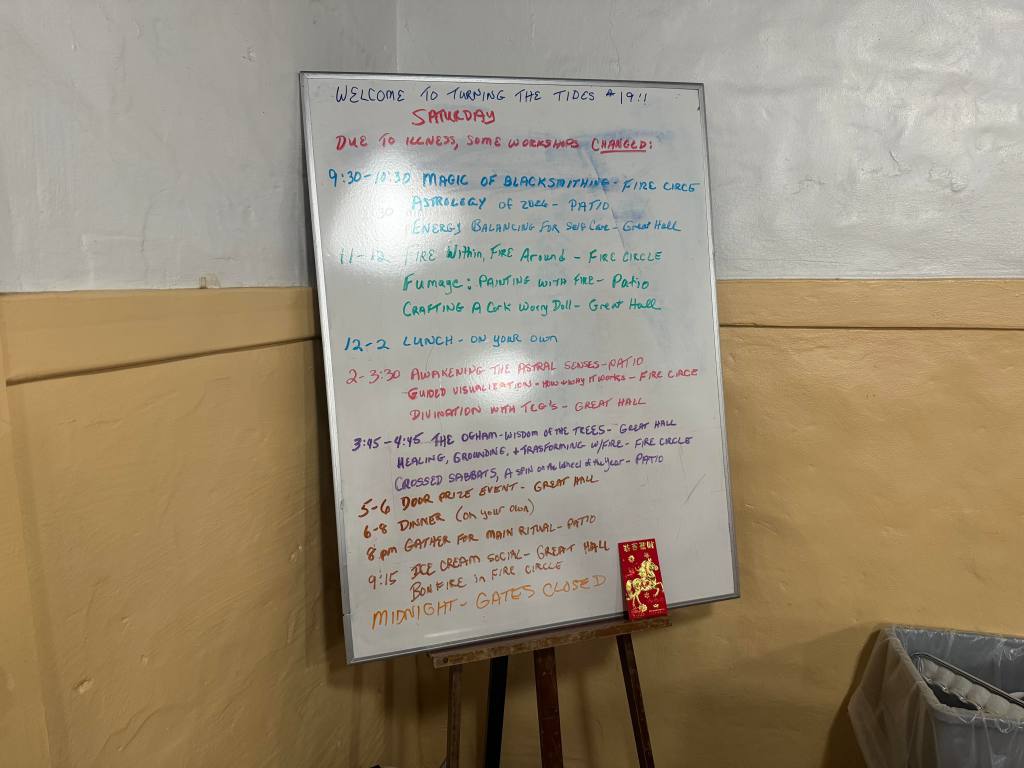 WELCOME TO TURNING THE TIDES #19!!
SATURDAY
DUE TO ILLNESS, SOME WORKSHOPS CHANGED:
9:30-10:30 MAGIC OF BLACKSMITHING - FIRE CIRCLE
ASTROLOGY OF 2026 - PATIO
ENERGY BALANCING FOR Self Care - Great Hall
11-12 FIRE Within, FIRE Around - FIRE CIRCLE
Fumage: PAINTING WITH FIRE - Patio
CRAFTING A Cork Worry Doll - Great Hall
12-2 LUNCH - ON YOUR OWN
2-3:30 AWAKENING THE ASTRAL SENSES - PATIO
GUIDED VISUALIZATION - HOW + WHY IT WORKS - FIRE CIRCLE
DIVINATION WITH TCG'S - GREAT HALL
3:45-4:45 THE OGHAM - WISDOM OF THE TREES - GREAT HALL
HEALING, GROUNDING, + TRASFORMING W/FIRE - FIRE CIRCLE
CROSSED SABBATS, A SPIN on the Wheel of the Year - PATIO
5-6 DOOR PRIZE EVENT - GREAT HALL
6-8 DINNER (on your own)
8 pm GATHER FOR MAIN RITUAL - PATIO
9:15 ICE CREAM SOCIAL - GREAT HALL
BONFIRE in FIRE CIRCLE
MIDNIGHT - GATES CLOSED